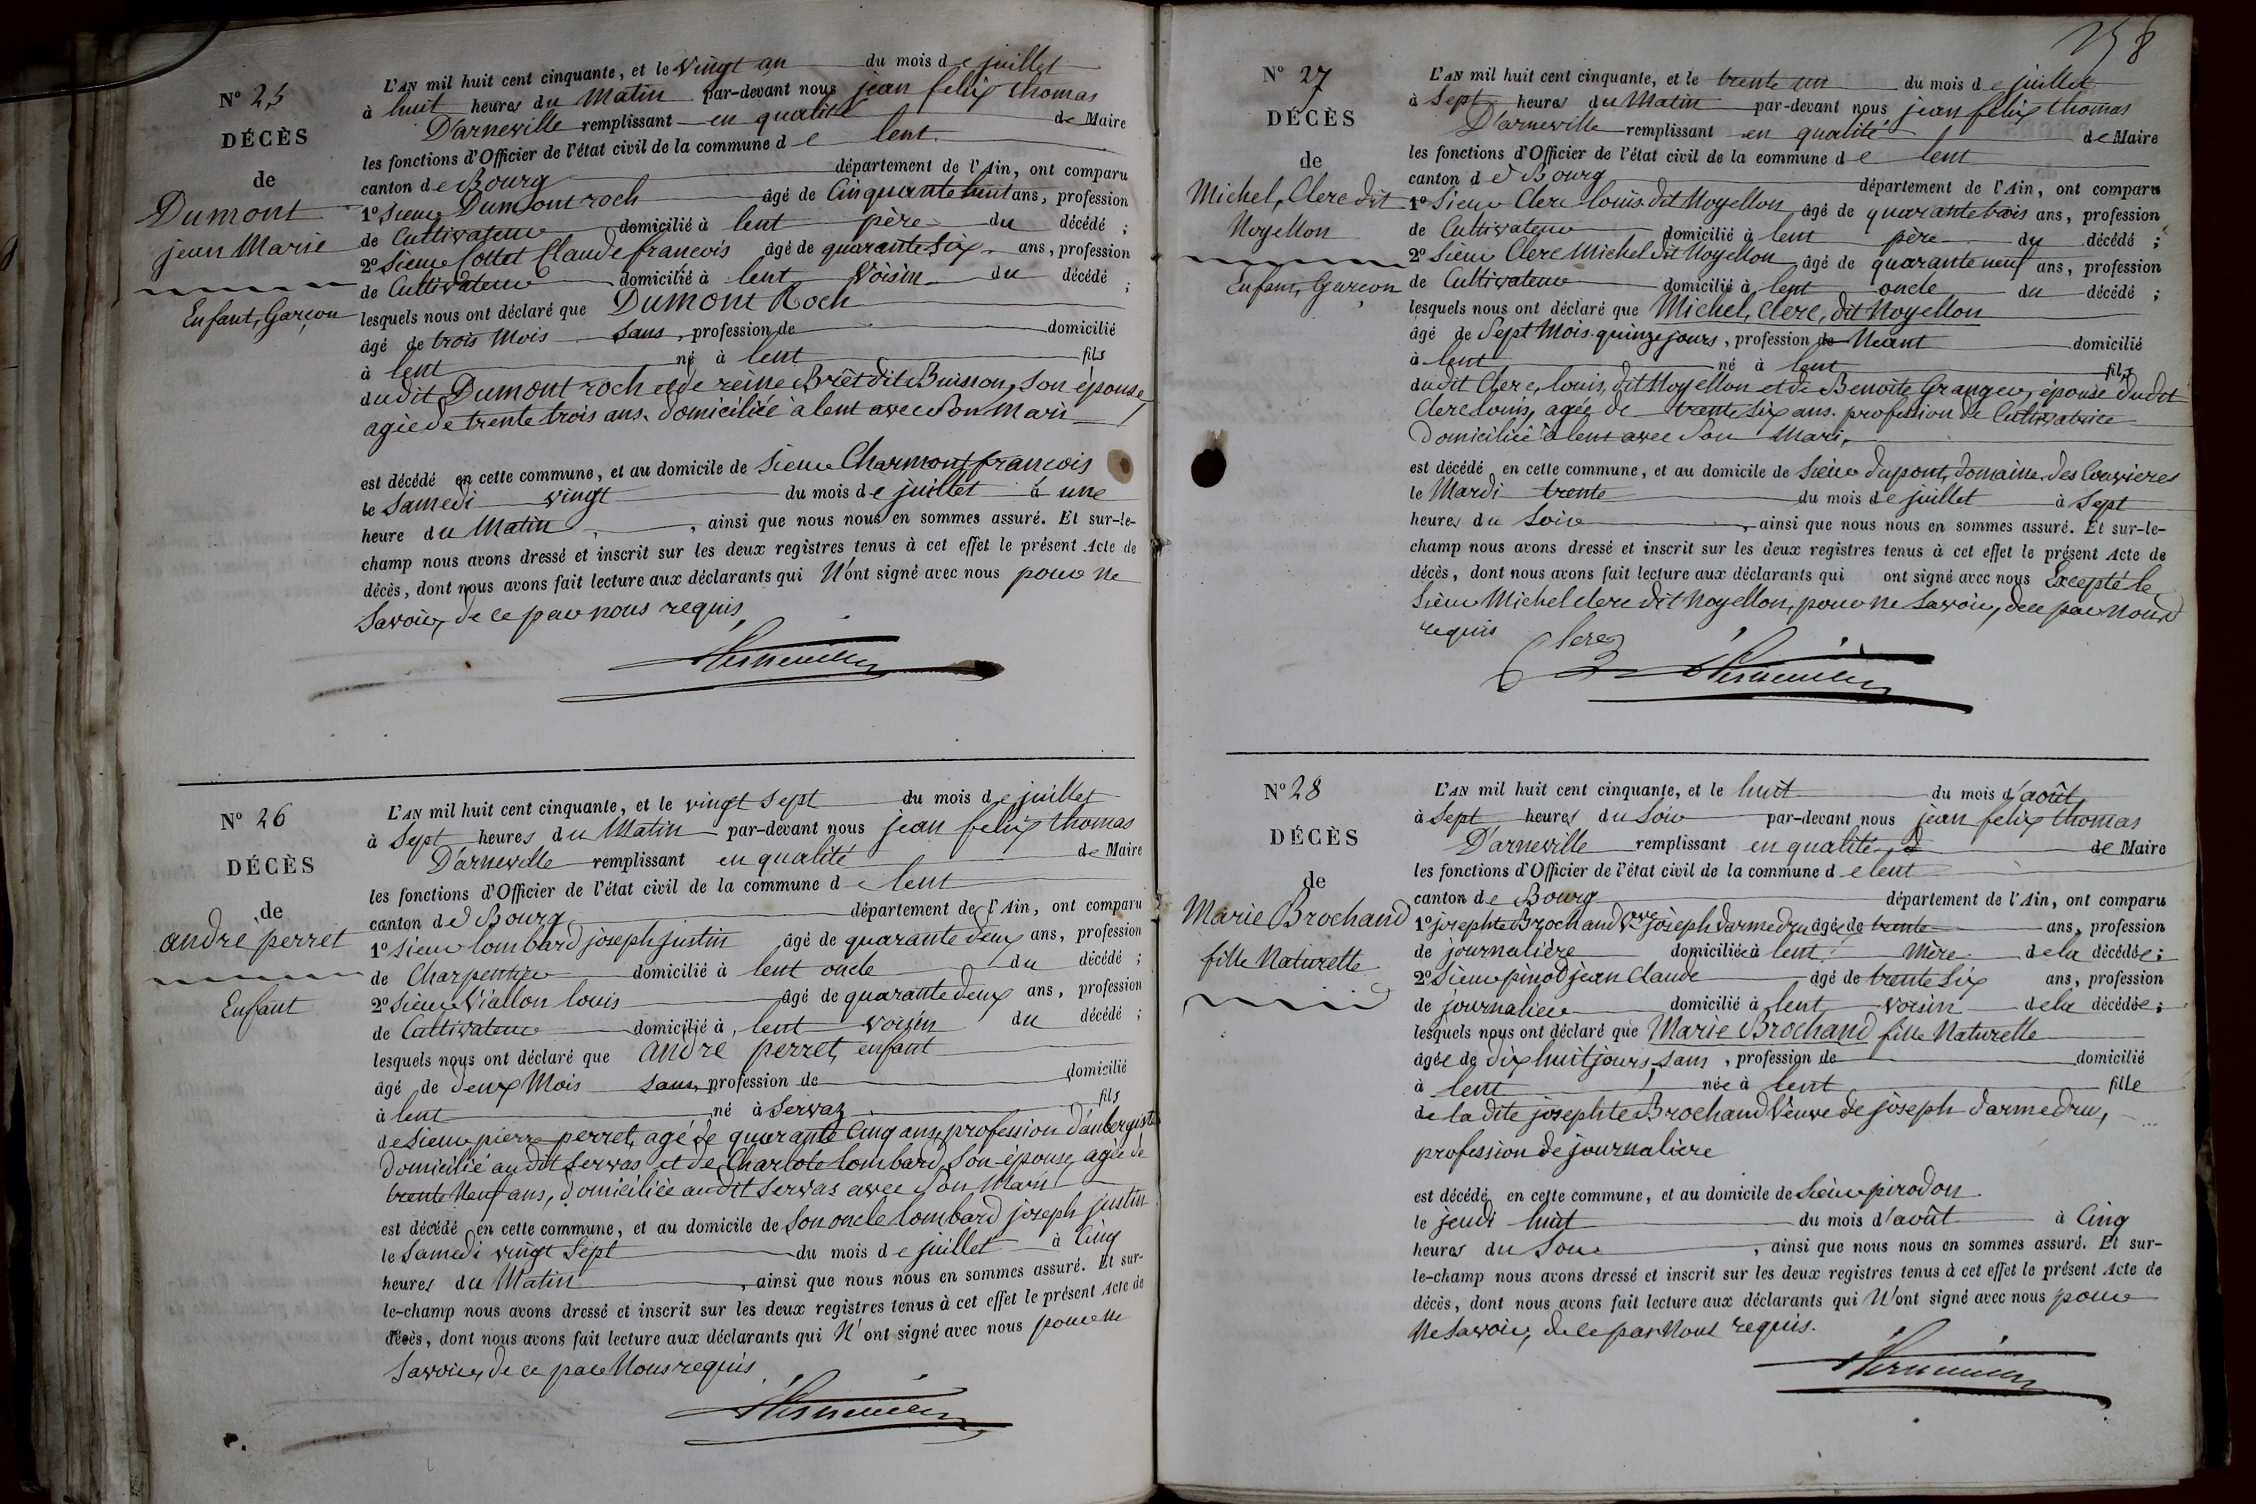 Nº 25
DÉCÈS
de
Dumont
jean Marie
Enfant, Garçon
L'AN mil huit cent cinquante, et le vingt un du mois de juillet
à huit heures du Matin par-devant nous jean felix thomas
D'arneville remplissant en qualité de Maire
les fonctions d'Officier de l'état civil de la commune de lent
canton de Bourg département de l'Ain, ont comparu
1º Sieur Dumont roch âgé de Cinquante huit ans, profession
de Cultivateur domicilié à lent père du décédé ;
2º Sieur Cottet Claude francois âgé de quarante Six ans, profession
de Cultivateur domicilié à lent Voisin du décédé ;
lesquels nous ont déclaré que Dumont Roch
âgé de trois Mois sans, profession de domicilié
à lent né à lent fils
dudit Dumont roch et de reine Brêt dit Buisson, Son épouse
agée de trente trois ans. domiciliée à lent avec Son Mari
est décédé en cette commune, et au domicile de Sieur Charmont francois
le Samedi vingt du mois de juillet à une
heure du Matin, ainsi que nous nous en sommes assuré. Et sur-le-
champ nous avons dressé et inscrit sur les deux registres tenus à cet effet le présent Acte de
décès, dont nous avons fait lecture aux déclarants qui N'ont signé avec nous pour ne
Savoir, de ce par nous requis,
Nº 26
DÉCÈS
de
andré perret
Enfant
L'AN mil huit cent cinquante, et le vingt Sept du mois de juillet
à Sept heures du Matin par-devant nous jean felix thomas
D'arneville remplissant en qualité de Maire
les fonctions d'Officier de l'état civil de la commune de lent
canton de Bourg département de l'Ain, ont comparu
1º Sieur lombard joseph justin âgé de quarante deux ans, profession
de Charpentier domicilié à lent oncle du décédé ;
2º Sieur Viallon louis âgé de quarante deux ans, profession
de Cultivateur domicilié à lent voisin du décédé ;
lesquels nous ont déclaré que andré perret, enfant
âgé de deux Mois sans, profession de domicilié
à lent né à Servaz fils
de Sieur pierre perret, agé de quarante Cinq ans, profession d'aubergiste
Domicilié audit Servas et de Charlote Lombard, Son épouse, agée de
trente Neuf ans, domiciliée audit Servas avec Son Mari
est décédé en cette commune, et au domicile de Son oncle lombard joseph justin
le Samedi vingt Sept du mois de juillet à Cinq
heures du Matin, ainsi que nous nous en sommes assuré. Et sur-
le-champ nous avons dressé et inscrit sur les deux registres tenus à cet effet le présent Acte de
décès, dont nous avons fait lecture aux déclarants qui N'ont signé avec nous pour ne
Savoir, de ce par Nous requis
258
Nº 27
DÉCÈS
de
Michel, Clerc dit
Noyellon
Enfant, Garçon
L'AN mil huit cent cinquante, et le trente un du mois de juillet
à Sept heures du Matin par-devant nous jean felix thomas
D'arneville remplissant en qualité de Maire
les fonctions d'Officier de l'état civil de la commune de lent
canton de Bourg département de l'Ain, ont comparu
1º Sieur Clerc louis dit Noyellon âgé de quarante trois ans, profession
de Cultivateur domicilié à lent père du décédé ;
2º Sieur Clerc Michel dit Noyellon âgé de quarante neuf ans, profession
de Cultivateur domicilié à lent oncle du décédé ;
lesquels nous ont déclaré que Michel, Clerc, dit Noyellon
âgé de Sept Mois quinze jours, profession de Neant domicilié
à lent né à lent fils
dudit Clerc, louis, dit Noyellon et de Benoite Granger, épouse dudit
Clerc louis, agée de trente Six ans. profession de Cultivatrice
Domiciliée à lent avec Son Mari,
est décédé en cette commune, et au domicile de Sieur dupont, domaine des Couvieres
le Mardi trente du mois de juillet à Sept
heures du Soir, ainsi que nous nous en sommes assuré. Et sur-le-
champ nous avons dressé et inscrit sur les deux registres tenus à cet effet le présent Acte de
décès, dont nous avons fait lecture aux déclarants qui ont signé avec nous Excepté le
Sieur Michel clerc dit Noyellon, pour ne Savoir, de ce par Nous
requis
Clerc
Nº 28
DÉCÈS
de
Marie Brochand
fille Naturelle
L'AN mil huit cent cinquante, et le huit du mois d'août
à Sept heures du Soir par-devant nous jean felix thomas
D'arneville remplissant en qualité de Maire
les fonctions d'Officier de l'état civil de la commune de lent
canton de Bourg département de l'Ain, ont comparu
1º josephte Brochand Vve joseph Darmedru âgée de trente ans, profession
de journalière domiciliée à lent Mère de la décédée ;
2º Sieur pinod jean Claude âgé de trente Six ans, profession
de journalier domicilié à lent voisin de la décédée ;
lesquels nous ont déclaré que Marie Brochand fille Naturelle
âgée de dix huit jours, sans, profession de domicilié
à lent née à lent fille
de la dite josephte Brochand Veuve de joseph Darmedru,
profession de journaliere
est décédé en cette commune, et au domicile de Sieur pirodon
le jeudi huit du mois d'août à Cinq
heures du Soir, ainsi que nous nous en sommes assuré. Et sur-
le-champ nous avons dressé et inscrit sur les deux registres tenus à cet effet le présent Acte de
décès, dont nous avons fait lecture aux déclarants qui N'ont signé avec nous pour
Ne Savoir, de ce par Nous requis.